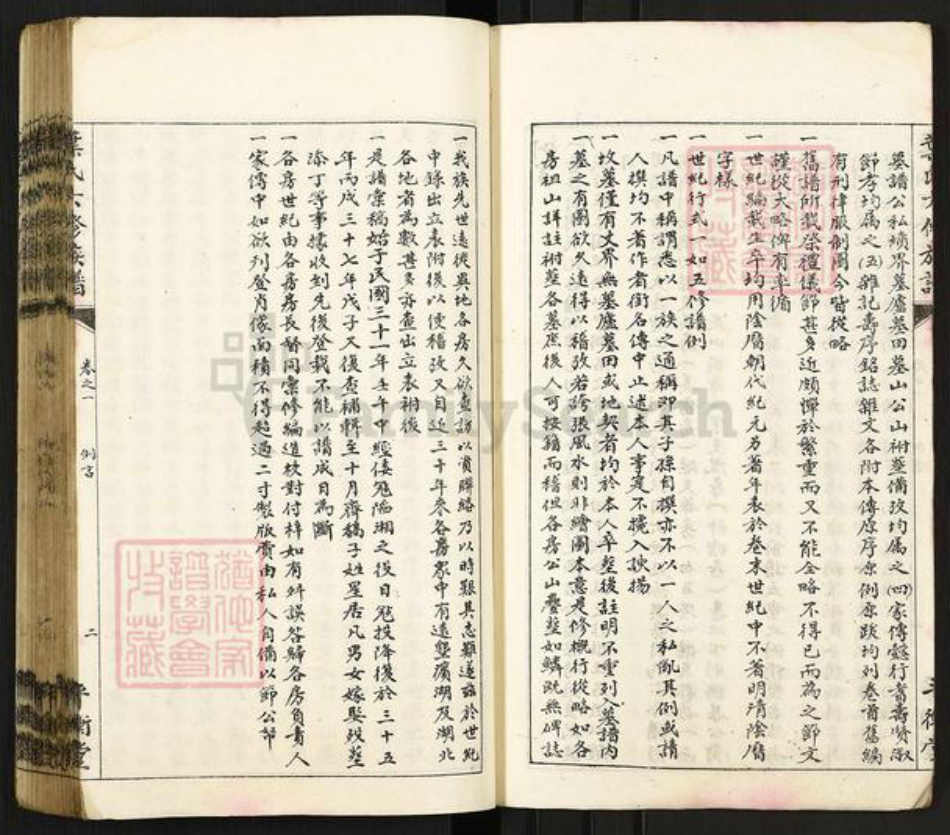 墓譜公私墳界墓廬墓田墓山公山祔塟備攷均屬之(四)家傳懿行耆壽賢淑
節孝均屬之(五)雜記壽序銘誌雜文各附本傳原序原例原跋均列卷首舊編
有刑律服制圖今皆從略
一舊譜所載祭禮儀節甚多近頗憚於繁重而又不能全略不得已而為之節文
謹從大略俾有率循
一世紀編載生卒均用陰曆朝代紀元另著年表於卷末世紀中不著明清陰曆
字樣
一世紀行式一如五修譜例
一凡譜中稱謂悉以一族之通稱即其子孫自撰亦不以一人之私亂其例或請
人撰均不著作者銜名傳中止述本人事寔不攙入諛揚
一坟墓僅有丈界無墓廬墓田或地契者均於本人卒塟後註明不重列入墓譜內
一墓之有圖欲久遠得以稽攷若誇張風水則非繪圖本意是修概行從略如各
房祖山詳註祔塟各墓庶後人可按籍而稽但各房公山疊塟如鱗既無碑誌
一我族先世遠徙異地各房久欲查訪以資聯絡乃以時艱其志難遂茲於世紀
中錄出立表附後以便稽攷又自近三十年來各房眾中有遠墾濱湖及湖北
各地者為數甚多亦查出立表祔後
一是譜彙稿始于民國三十一年壬午中經倭冠陥湘之役日冠投降復於三十五
年丙戌三十七年戊子又復查補輯至十月齊稿子姓星居凡男女嫁娶歿塟
添丁等事據收到先後登載不能以譜成日為斷
一各房世紀由各房房長督同彙修編造校對付梓如有舛誤咎歸各房負責人
一家傳中如欲列登肖像面積不得超過二寸製版費由私人自備以節公帑
葉氏六修族譜
卷之一
例言
二
平衡堂